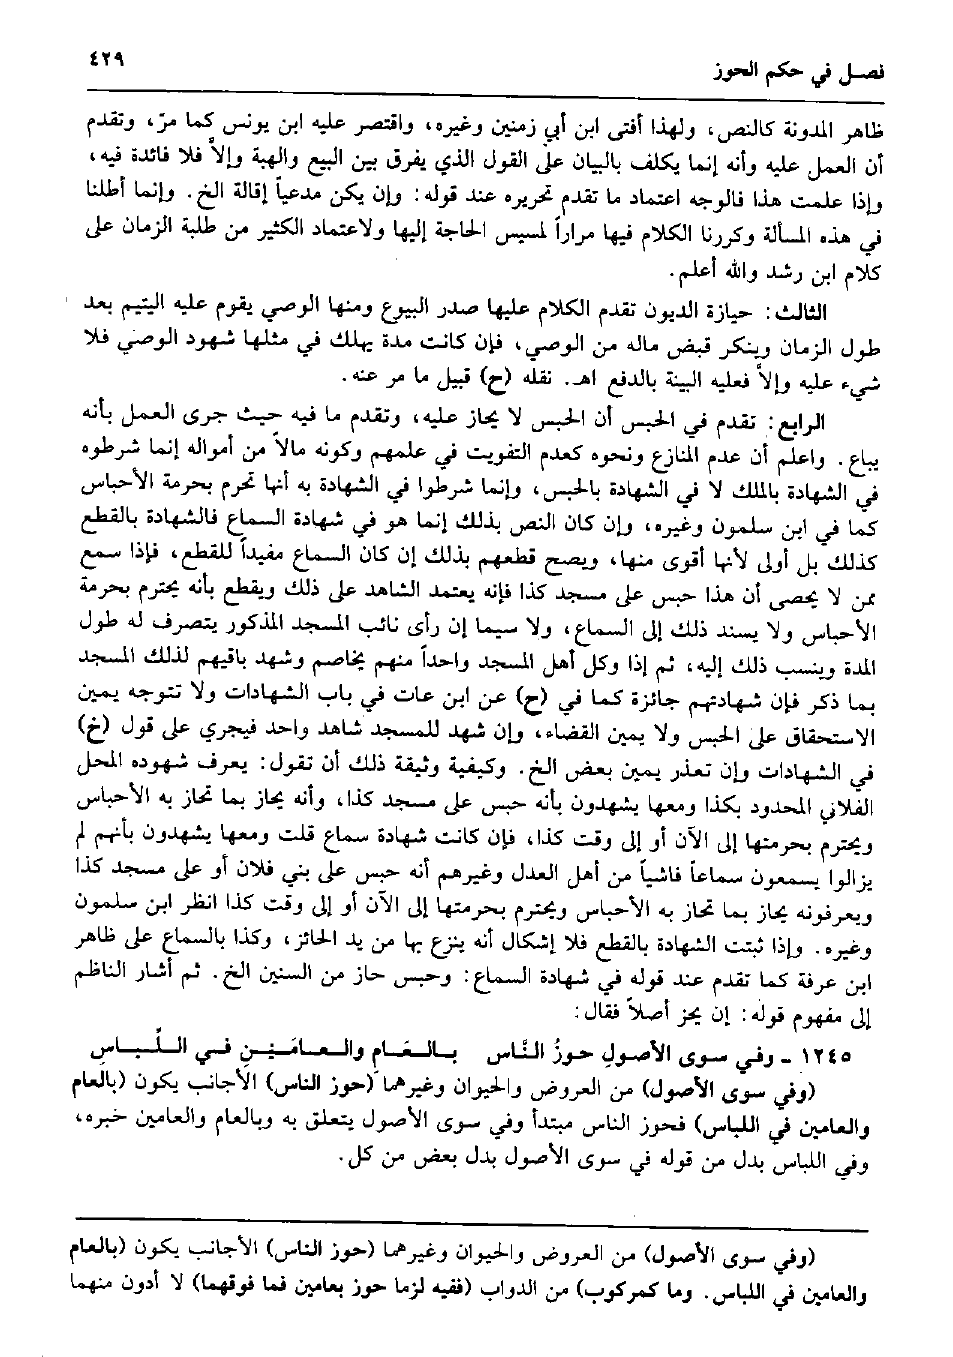 فصل في حكم الحوز ٤٢٩
ظاهر المدونة كالنص، ولهذا أفتى ابن أبي زمنين وغيره، واقتصر عليه ابن يونس كما مرّ، وتقدم
أن العمل عليه وأنه إنما يكلف بالبيان على القول الذي يفرق بين البيع والهبة وإلاّ فلا فائدة فيه،
وإذا علمت هذا فالوجه اعتماد ما تقدم تحريره عند قوله: وإن يكن مدعياً إقالة الخ. وإنما أطلنا
في هذه المسألة وكررنا الكلام فيها مراراً لمسيس الحاجة إليها ولاعتماد الكثير من طلبة الزمان على
كلام ابن رشد والله أعلم.
الثالث: حيازة الديون تقدم الكلام عليها صدر البيوع ومنها الوصي يقوم عليه اليتيم بعد
طول الزمان وينكر قبض ماله من الوصي، فإن كانت مدة يهلك في مثلها شهود الوصي فلا
شيء عليه وإلاّ فعليه البينة بالدفع اهـ. نقله (ح) قبيل ما مر عنه.
الرابع: تقدم في الحبس أن الحبس لا يحاز عليه، وتقدم ما فيه حيث جرى العمل بأنه
يباع. واعلم أن عدم المنازع ونحوه كعدم التفويت في علمهم وكونه مالاً من أمواله إنما شرطوه
في الشهادة بالملك لا في الشهادة بالحبس، وإنما شرطوا في الشهادة به أنها تحرم بحرمة الأحباس
كما في ابن سلمون وغيره، وإن كان النص بذلك إنما هو في شهادة السماع فالشهادة بالقطع
كذلك بل أولى لأنها أقوى منها، ويصح قطعهم بذلك إن كان السماع مفيداً للقطع، فإذا سمع
ممن لا يحصى أن هذا حبس على مسجد كذا فإنه يعتمد الشاهد على ذلك ويقطع بأنه يحترم بحرمة
الأحباس ولا يسند ذلك إلى السماع، ولا سيما إن رأى نائب المسجد المذكور يتصرف له طول
المدة وينسب ذلك إليه، ثم إذا وكل أهل المسجد واحداً منهم يخاصم وشهد باقيهم لذلك المسجد
بما ذكر فإن شهادتهم جائزة كما في (ح) عن ابن عات في باب الشهادات ولا تتوجه يمين
الاستحقاق على الحبس ولا يمين القضاء، وإن شهد للمسجد شاهد واحد فيجري على قول (خ)
في الشهادات وإن تعذر يمين بعض الخ. وكيفية وثيقة ذلك أن تقول: يعرف شهوده المحل
الفلاني المحدود بكذا ومعها يشهدون بأنه حبس على مسجد كذا، وأنه يحاز بما تحاز به الأحباس
ويحترم بحرمتها إلى الآن أو إلى وقت كذا، فإن كانت شهادة سماع قلت ومعها يشهدون بأنهم لم
يزالوا يسمعون سماعاً فاشياً من أهل العدل وغيرهم أنه حبس على بني فلان أو على مسجد كذا
ويعرفونه يحاز بما تحاز به الأحباس ويحترم بحرمتها إلى الآن أو إلى وقت كذا انظر ابن سلمون
وغيره. وإذا ثبتت الشهادة بالقطع فلا إشكال أنه ينزع بها من يد الحائز، وكذا بالسماع على ظاهر
ابن عرفة كما تقدم عند قوله في شهادة السماع: وحبس حاز من السنين الخ. ثم أشار الناظم
إلى مفهوم قوله: إن يحز أصلاً فقال:
١٢٤٥ - وفي سوى الأصولِ حوزُ النَّاس بالعَامِ والعامَيْنِ في اللِّبَاسِ
(وفي سوى الأصول) من العروض والحيوان وغيرهما (حوز الناس) الأجانب يكون (بالعام
والعامين في اللباس) فحوز الناس مبتدأ وفي سوى الأصول يتعلق به وبالعام والعامين خبره،
وفي اللباس بدل من قوله في سوى الأصول بدل بعض من كل.
(وفي سوى الأصول) من العروض والحيوان وغيرهما (حوز الناس) الأجانب يكون (بالعام
والعامين في اللباس. وما كمركوب) من الدواب (ففيه لزما حوز بعامين فما فوقهما) لا أدون منهما